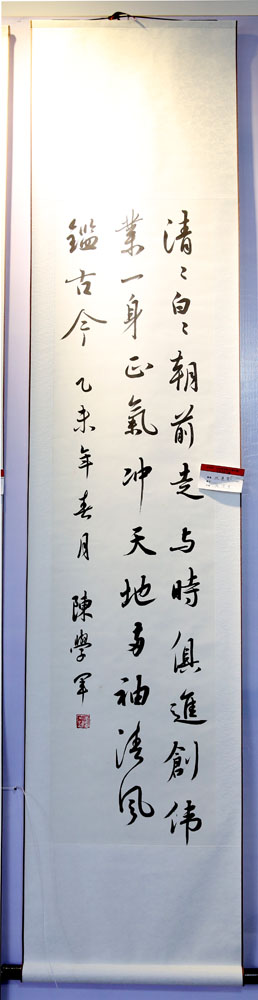 清〻白〻朝前走与時俱進創伟
業一身正氣冲天地两袖清风
鑑古今 乙未年春月 陳學军